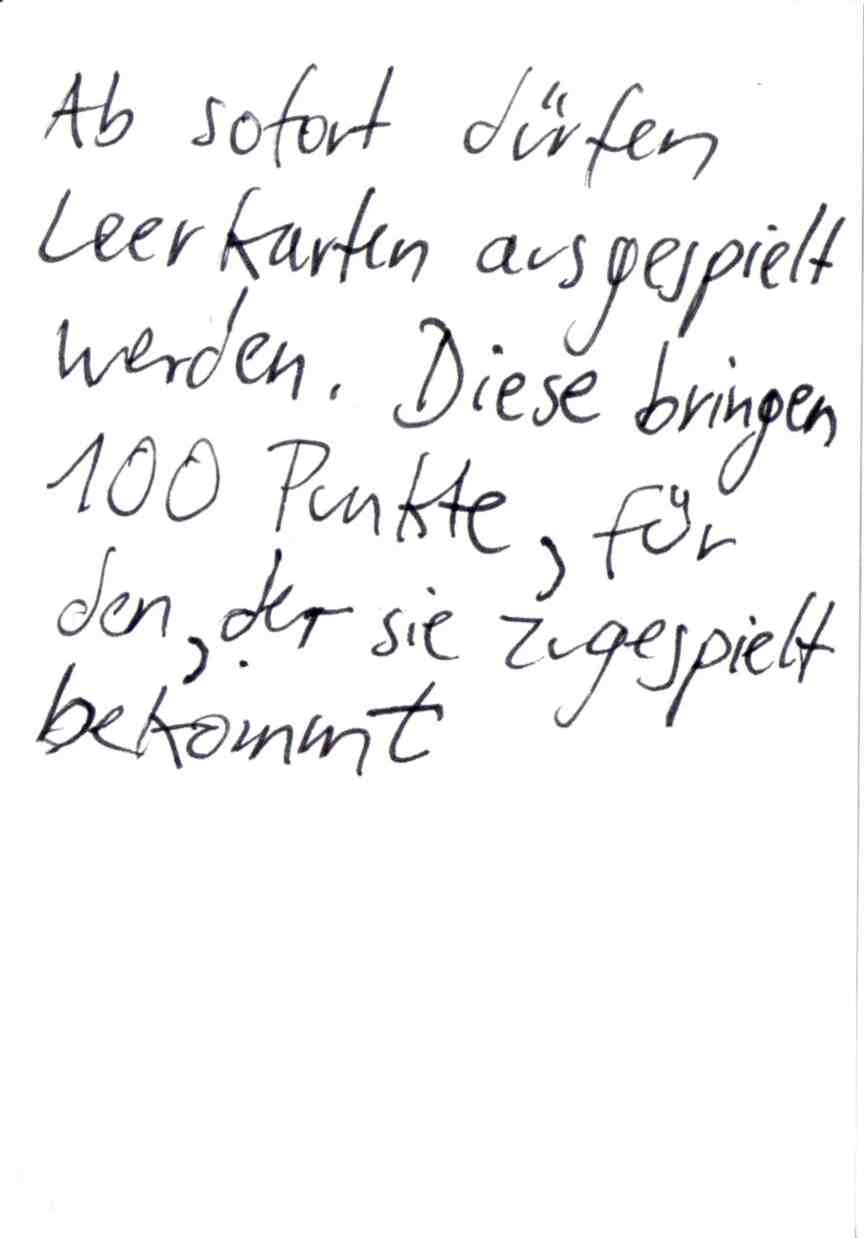 Ab sofort dürfen
Leerkarten ausgespielt
werden. Diese bringen
100 Punkte, für
den, der sie zugespielt
bekommt